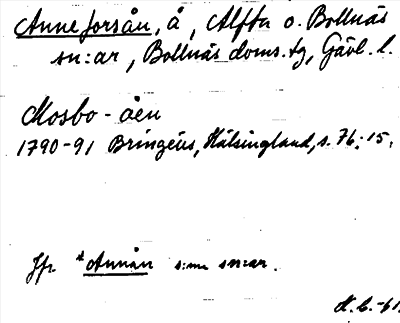 Anneforsån, å, Alfta o. Bollnäs
sn:ar, Bollnäs doms.tg, Gävl. l.
Mosbo-åen
1790-91 Bringéus, Hälsingland, s. 76; 15.
Jfr *Annån s:ma sn:ar.
H.C.-61.